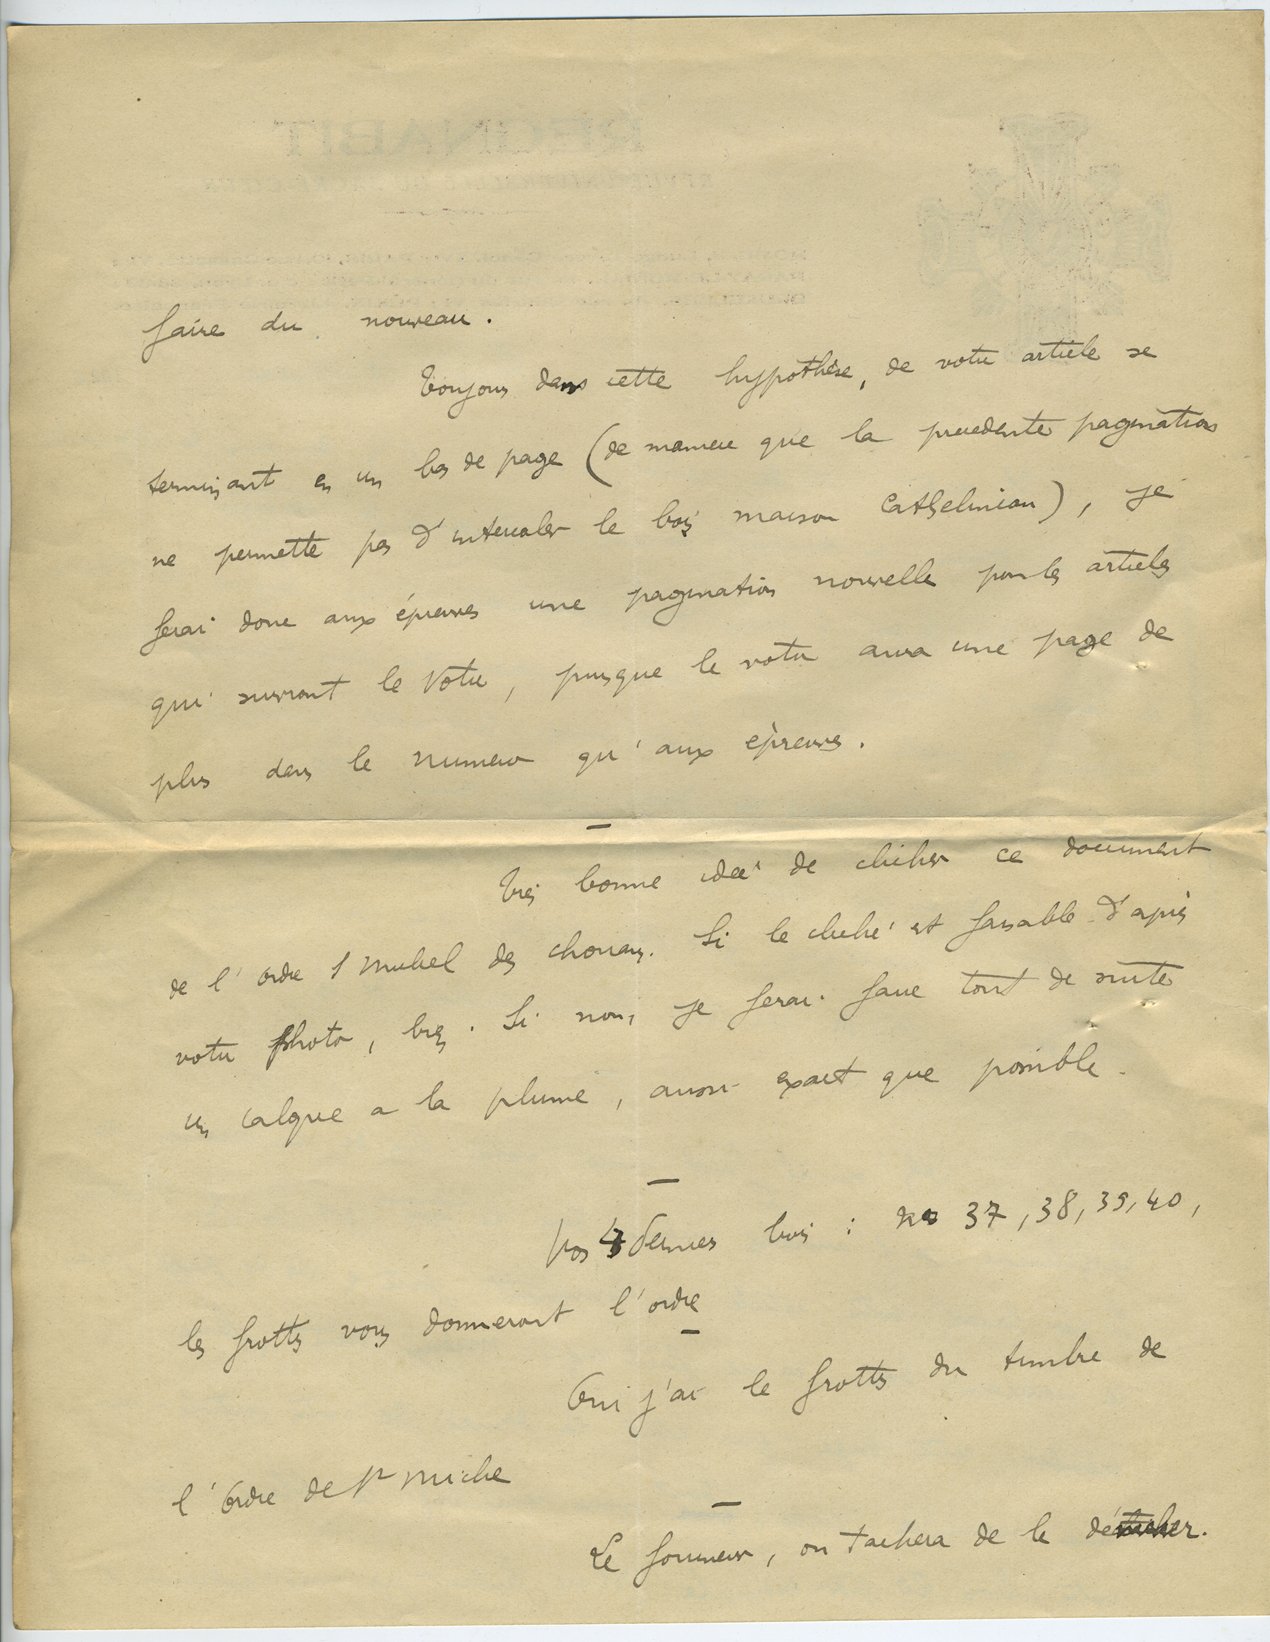 faire du nouveau.
Toujours dans cette hypothèse, de votre article se
terminant en un bas de page (de maniere que la precedente pagination
ne permette pas d'intercaler le bois maison Cathelinian), je
ferai donc aux épreuves une pagination nouvelle pour les articles
qui suivront le votre, puisque le votre aura une page de
plus dans le numero qu'aux épreuves.
—
Très bonne idée de clicher ce document
de l'ordre S Michel des chouans. Si le cliché est faisable d'après
votre photo, bien. Si non, je ferai faire tout de suite
un calque a la plume, aussi exact que possible.
—
Vos 4 derniers bois : nos 37, 38, 39, 40,
les frottis vous donneront l'ordre
—
Oui j'ai le frottis du timbre de
l'ordre de St Miche
—
Le , on tachera de le